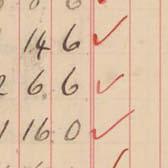 14 6 ✓
2 6 6 ✓
1 16 0 ✓